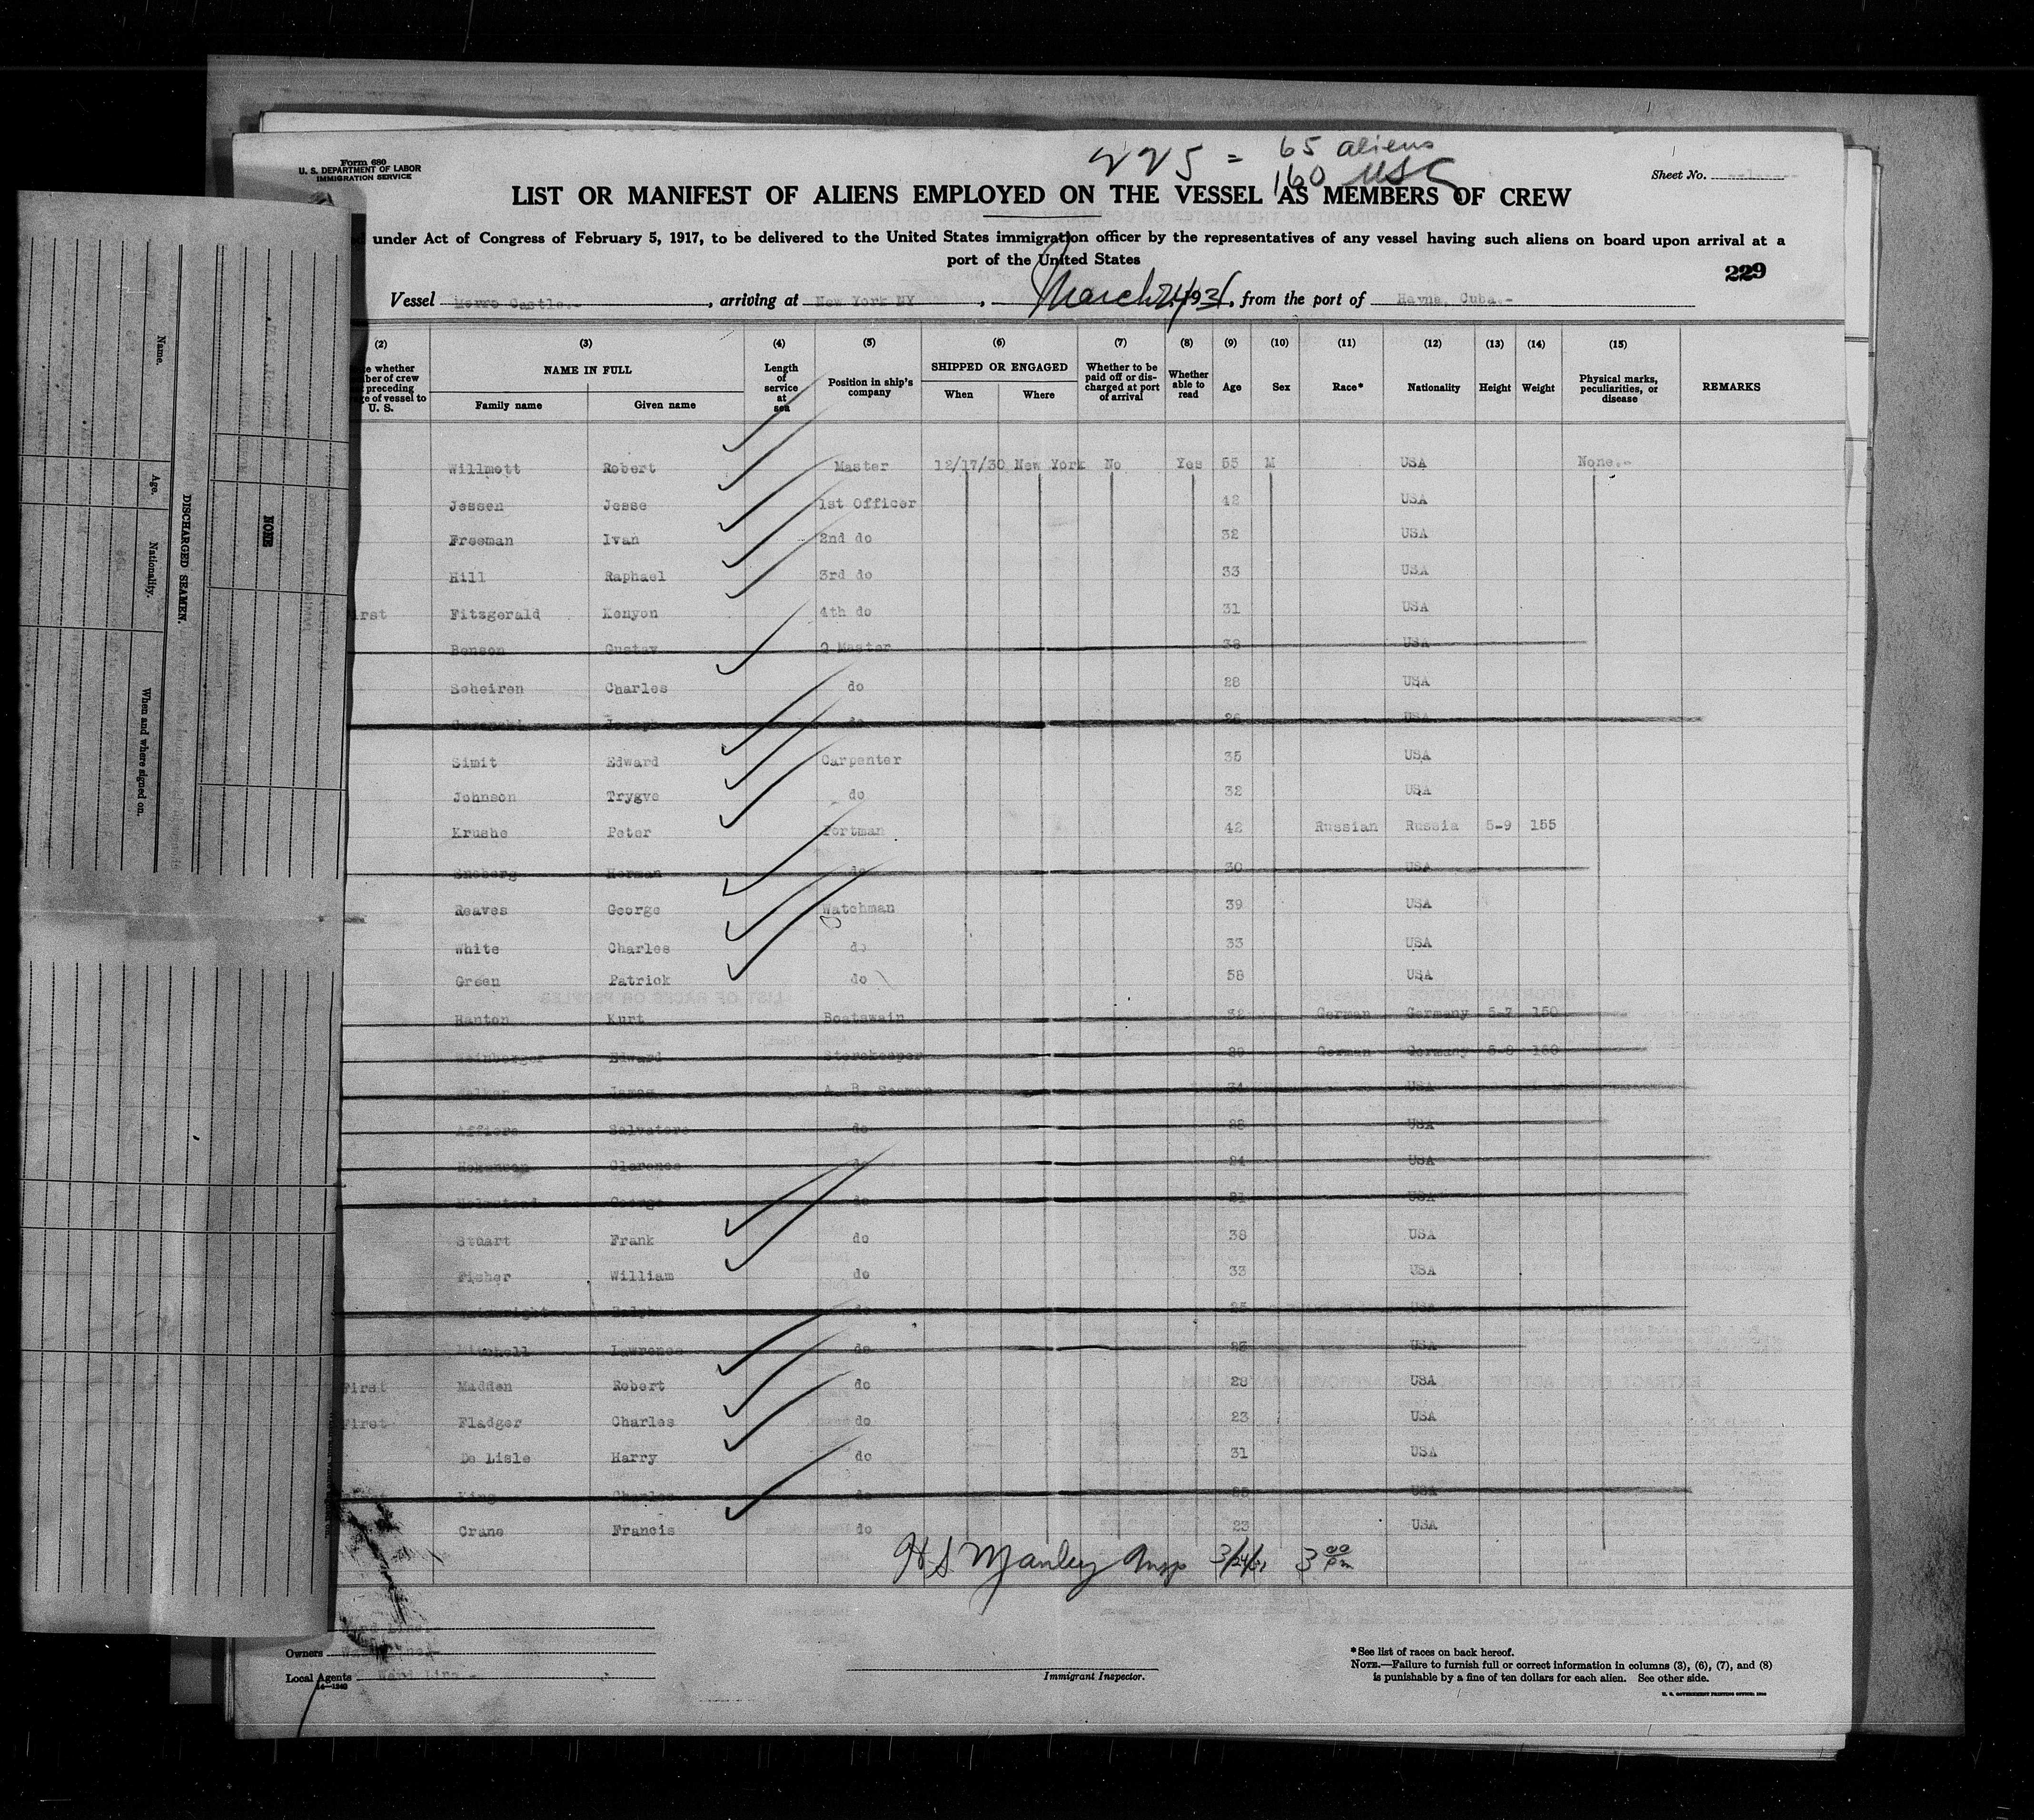 225 = 65 aliens
160 USC
Form 680
U. S. DEPARTMENT OF LABOR
IMMIGRATION SERVICE
Sheet No.
LIST OR MANIFEST OF ALIENS EMPLOYED ON THE VESSEL AS MEMBERS OF CREW
under Act of Congress of February 5, 1917, to be delivered to the United States immigration officer by the representatives of any vessel having such aliens on board upon arrival at a
port of the United States
229
Vessel Morro Castle.-, arriving at New York NY, March 24 1931, from the port of Havna, Cuba.-
(2) (3) (4) (5) (6) (7) (8) (9) (10) (11) (12) (13) (14) (15)
whether
of crew
preceding
of vessel to
U. S.
NAME IN FULL
Family name Given name
Length
of
service
at
sea
Position in ship's
company
SHIPPED OR ENGAGED
When Where
Whether to be
paid off or dis-
charged at port
of arrival
Whether
able to
read
Age Sex Race* Nationality Height Weight
Physical marks,
peculiarities, or
disease
REMARKS
Willmott Robert Master 12/17/30 New York No Yes 55 M USA None.-
Jessen Jesse 1st Officer 42 USA
Freeman Ivan 2nd do 32 USA
Hill Raphael 3rd do 33 USA
First Fitzgerald Kenyon 4th do 31 USA
Benson Gustav Q Master 38 USA
Scheiren Charles do 28 USA
Joseph do 26 USA
Simit Edward Carpenter 35 USA
Johnson Trygve do 32 USA
Krushe Peter Portman 42 Russian Russia 5-9 155
Herman do 30 USA
Reaves George Watchman 39 USA
White Charles do 33 USA
Green Patrick do 58 USA
Hanton Kurt Boatswain 32 German Germany 5-7 150
Weinberger Edward Storekeeper German Germany
James A. B. Seaman 34 USA
Salvatore do 28 USA
Clarence do 24 USA
George do 21 USA
Stuart Frank do 38 USA
Fisher William do 33 USA
Ralph do 25 USA
Mitchell Lawrence do 25 USA
First Madden Robert do 28 USA
First Fladger Charles do 23 USA
De Lisle Harry do 31 USA
King Charles do USA
Crane Francis do 23 USA
H S Manley Insp 3/24/31 3 00 pm
Ward Line.-
Owners
Local Agents Ward Line.-
14—1240
Immigrant Inspector.
*See list of races on back hereof.
NOTE.—Failure to furnish full or correct information in columns (3), (6), (7), and (8)
is punishable by a fine of ten dollars for each alien. See other side.
U. S. GOVERNMENT PRINTING OFFICE
Name. Age. Nationality. When and where signed on.
DISCHARGED SEAMEN.
NONE